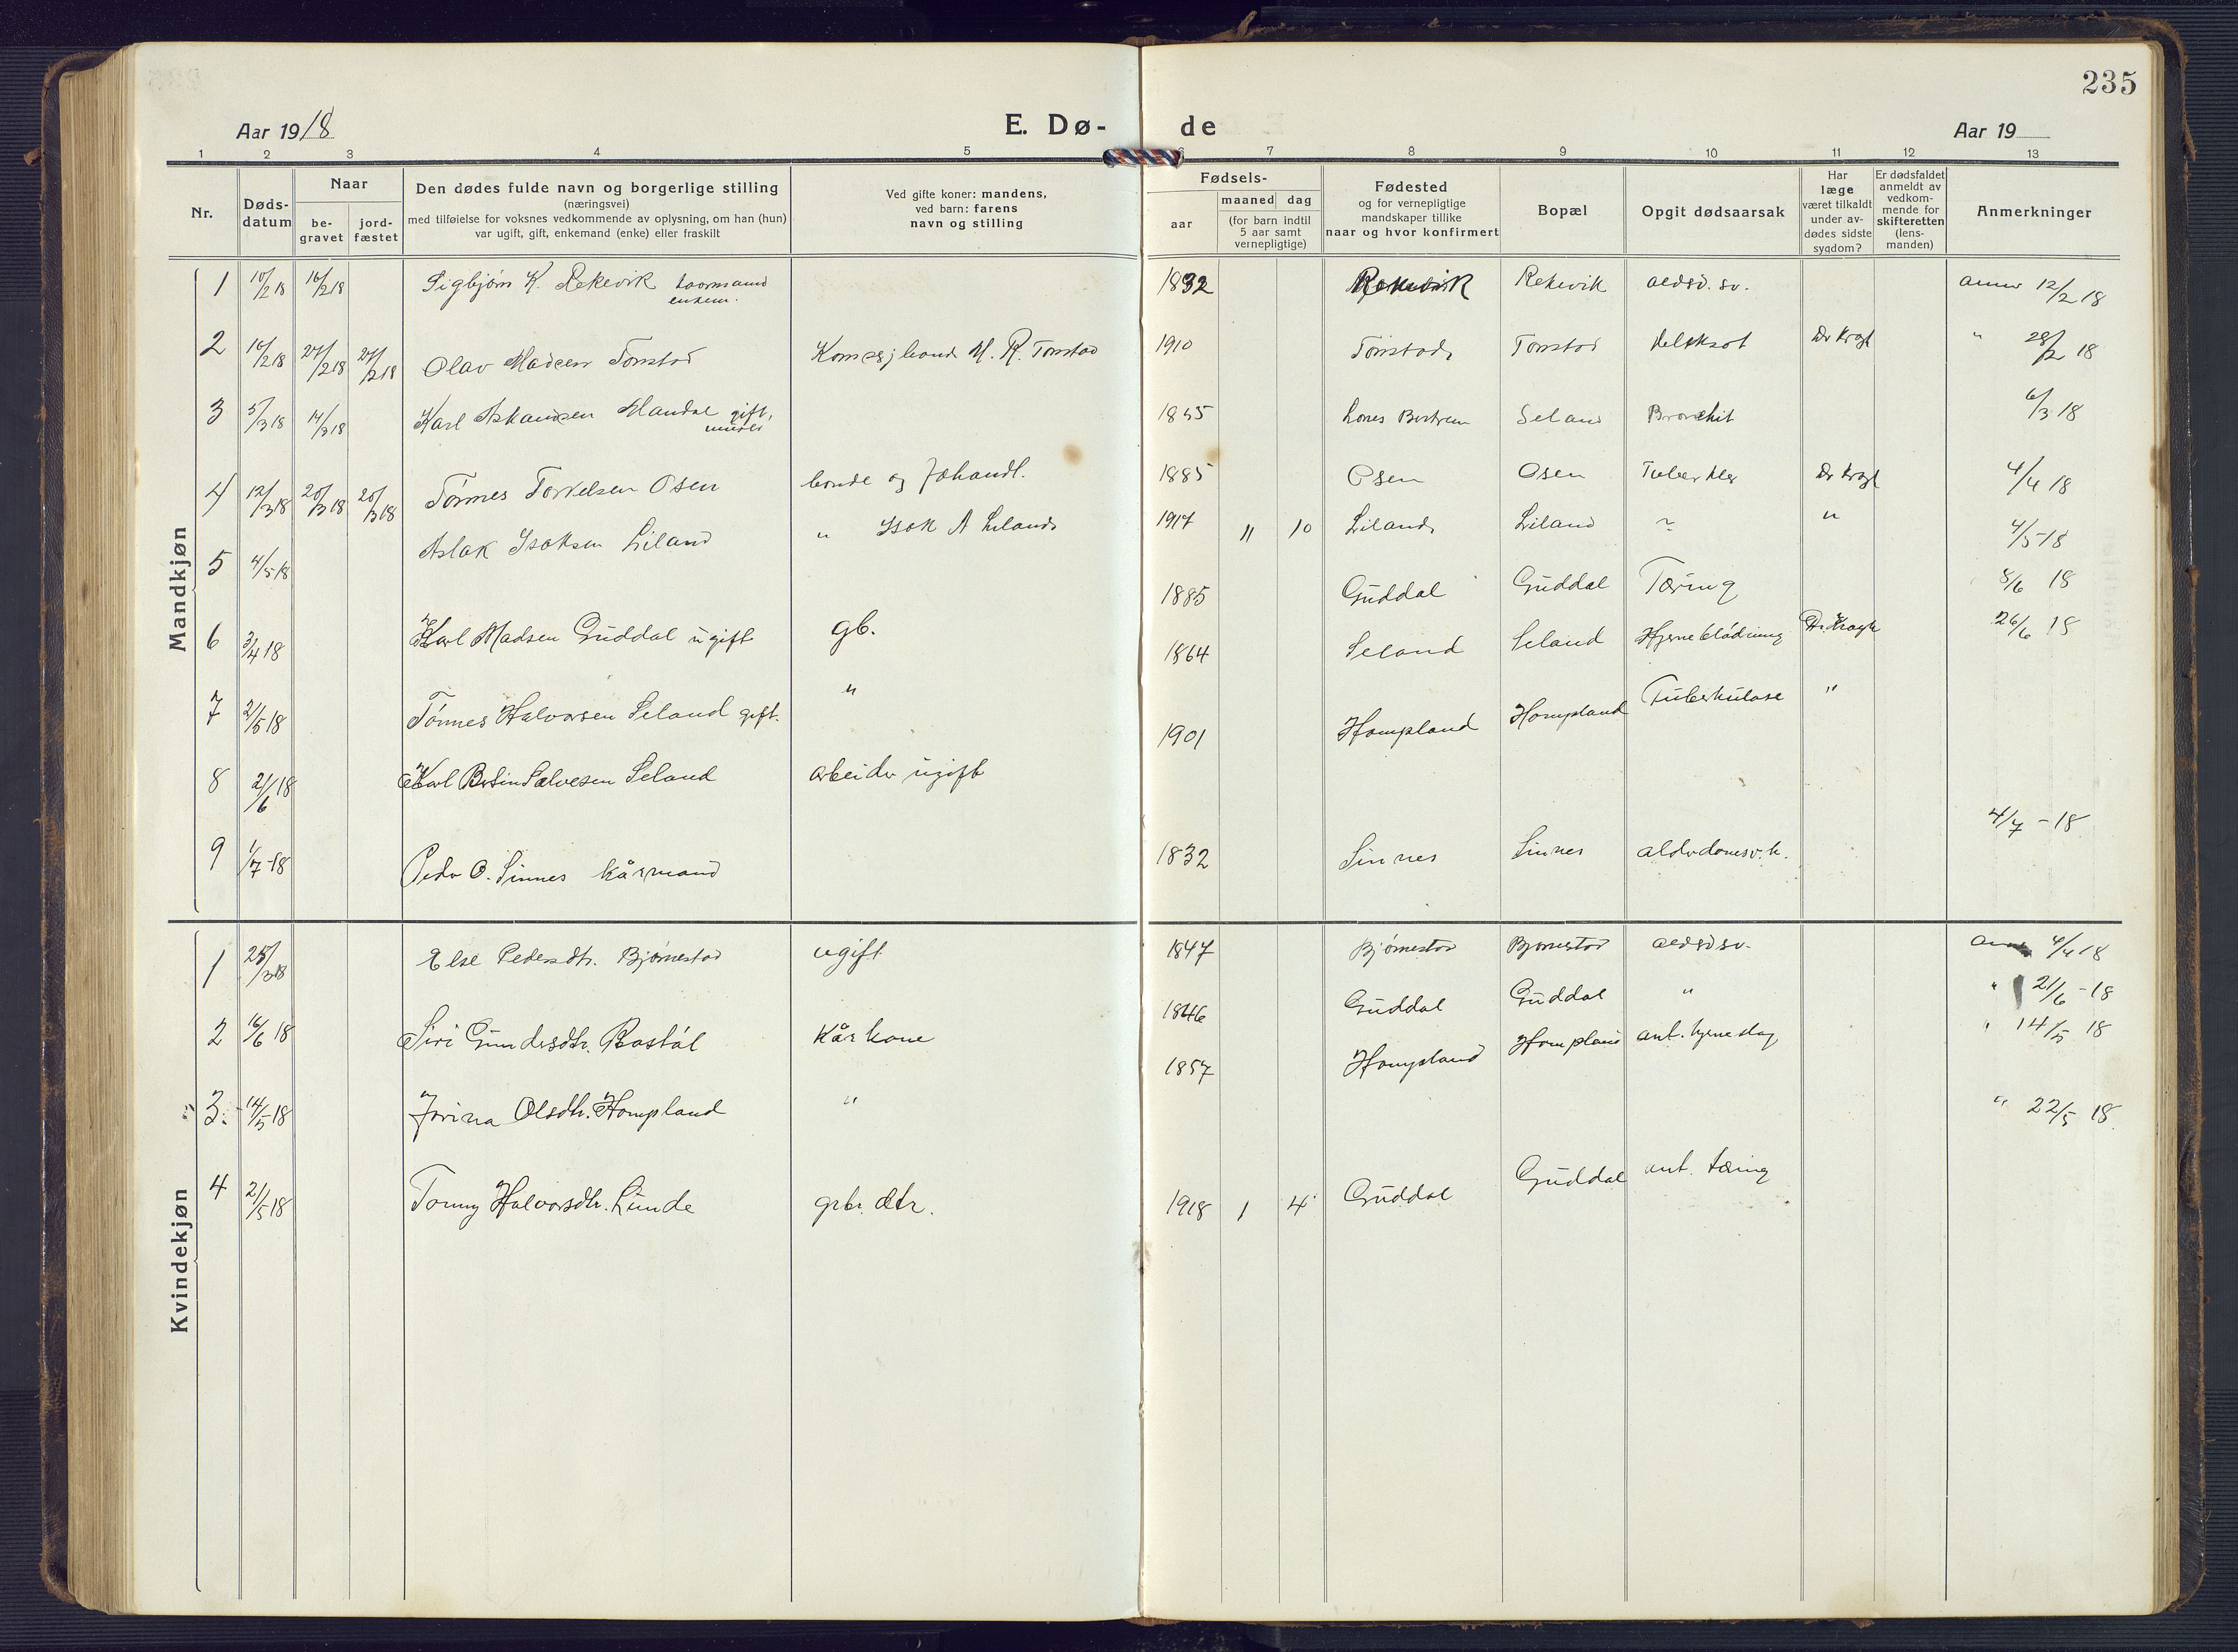 235
Aar 1918 E. Dø- de Aar 19
1 2 3 4 5 6 7 8 9 10 11 12 13
Nr.
Døds-
datum
Naar
be-
gravet
jord-
fæstet
Den dødes fulde navn og borgerlige stilling
(næringsvei)
med tilføielse for voksnes vedkommende av oplysning, om han (hun)
var ugift, gift, enkemand (enke) eller fraskilt
Ved gifte koner: mandens,
ved barn: farens
navn og stilling
Fødsels-
aar
maaned dag
(for barn indtil
5 aar samt
vernepligtige)
Fødested
og for vernepligtige
mandskaper tillike
naar og hvor konfirmert
Bopæl
Opgit dødsaarsak
Har
læge
været tilkaldt
under av-
dødes sidste
sygdom?
Er dødsfaldet
anmeldt av
vedkom-
mende for
skifteretten
(lens-
manden)
Anmerkninger
Mandkjøn
1 10/2 18 16/2 18 Sigbjørn K. Rekevik 1832 Rekevik Rekevik 12/2 18
2 16/2 18 27/2 18 27/2 18 Olav Madsen Tonstad M. R. Tonstad 1910 Tonstad Tonstad Dr Krogh " 28/2 18
3 5/3 18 14/3 18 Karl Mandal gift, Seland Bronchit 6/3 18
4 12/3 18 20/3 18 20/3 18 Tønnes Torkelsen Osen bonde og 1885 Osen Osen Dr Krogh 4/4 18
5 4/5 18 Aslak Isaksen Liland " Isak A Liland 1917 11 10 Liland Liland " 4/5-18
6 3/4 18 Karl Madsen Guddal ugift gb. 1885 Guddal Guddal Tæring 8/6 18
7 2/5 18 Tønnes Halvorsen Seland gift. " 1864 Seland Seland Hjerneblødning Dr. Kragh 26/6 18
8 21/6 18 Karl Salvesen Seland arbeider ugift 1901 Hompland Hompland Tuberkulose "
9 1/7-18 Peder O. Sinnes kårmand 1832 Sinnes Sinnes 4/7-18
Kvindekjøn
1 25/3 18 Else Pedersdtr. Bjørnestad ugift 1847 Bjørnestad Bjørnestad 4/4 18
2 16/6 18 Siri Gundersdtr. Rostøl Kårkone 1846 Guddal Guddal " " 21/6-18
3. 14/5 18 Olsdtr. Hompland " 1857 Hompland Hompland ant. hjerneslag " 14/5 18
4 2/5 18 Tonny Halvorsdtr. Lunde gbr. dtr. 1918 1 4 Guddal Guddal ant. tæring " 22/5 18